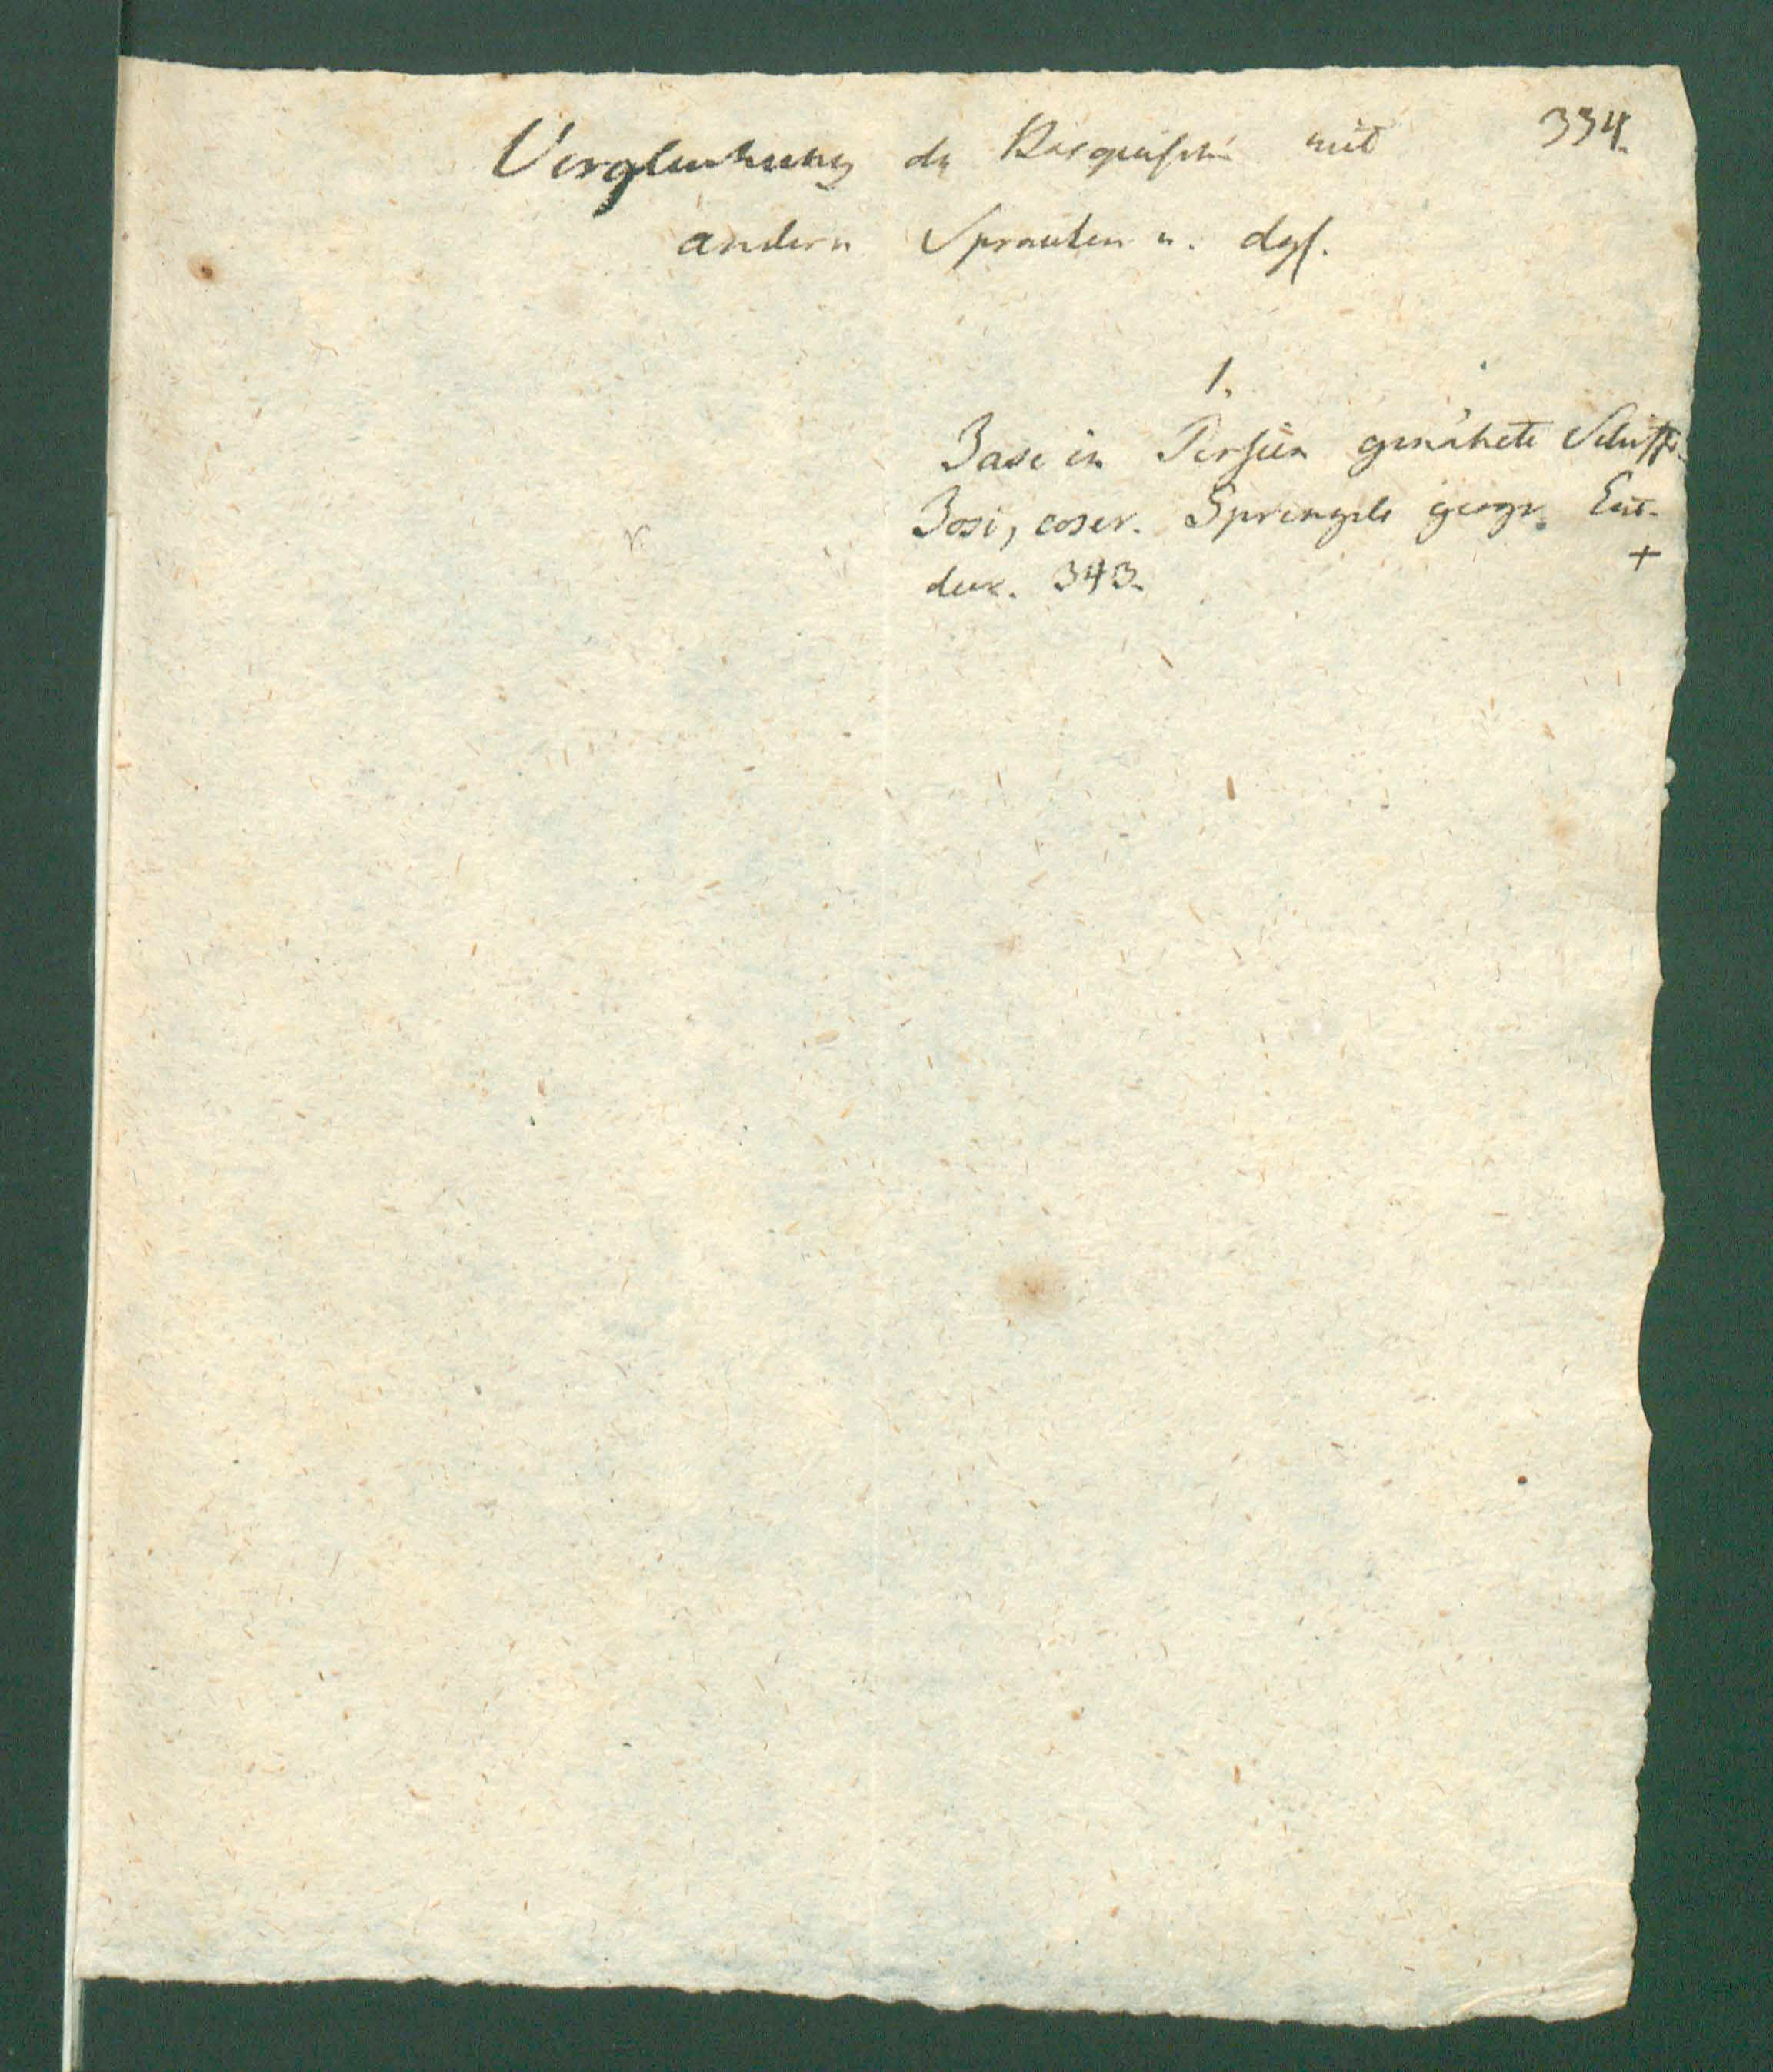 334.
Vergleichung des Basquischen mit
andern Sprachen u. dgl.
1.
Jase in Persien genähete Schiffe.
Josi, coser. Sprengels geogr. Ent-
+
deck. 343.